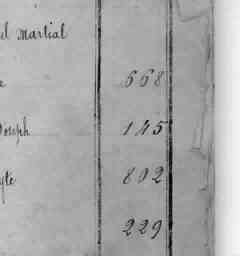 el Martial
e 668
Joseph 145
yte 802
229